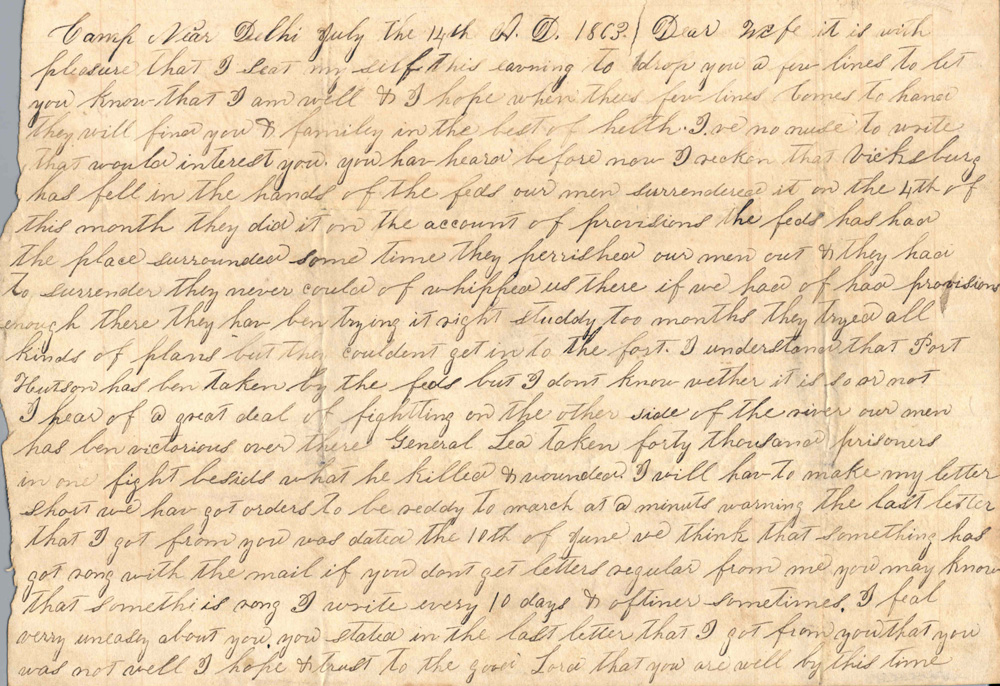 Camp Near Delhi July the 14th A. D. 1863.) Dear Wife it is with
pleasure that I seat my self this eavning to drop you a few lines to let
you know that I am well & I hope when thees few lines Comes to hand
they will find you & family in the best of helth. I ve no nuse to write
that would interest you. you hav heard before now I recken that Vicksburg
has fell in the hands of the feds our men surrendered it on the 4th of
this month they did it on the account of provisions the feds has had
the place surrounded some time they perrished our men out & they had
to surrender they never could of whipped us there if we had of had provisions
enough there they hav ben trying it right studdy too months they tryed all
kinds of plans but they couldent get in to the fort. I understand that Port
Hutson has ben taken by the feds but I dont know wether it is so or not
I hear of a great deal of fightting on the other side of the river our men
has ben victorious over there General Lea taken forty thousand prisoners
in one fight besids what he killed & wounded. I will hav to make my letter
short we hav got orders to be reddy to march at a minuts warning the last letter
that I got from you was dated the 10th of June we think that something has
got rong with the mail if you dont get letters regular from me you may know
that somethi is rong I write every 10 days & oftiner sometimes. I feal
verry uneasy about you. you stated in the last letter that I got from you that you
was not well I hope & trust to the good Lord that you are well by this time